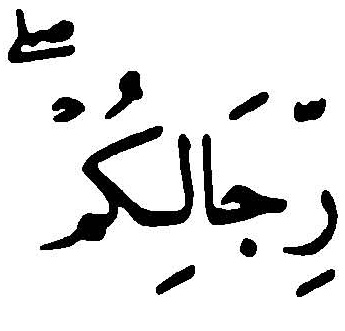 رِّجَالِكُمۡۖ